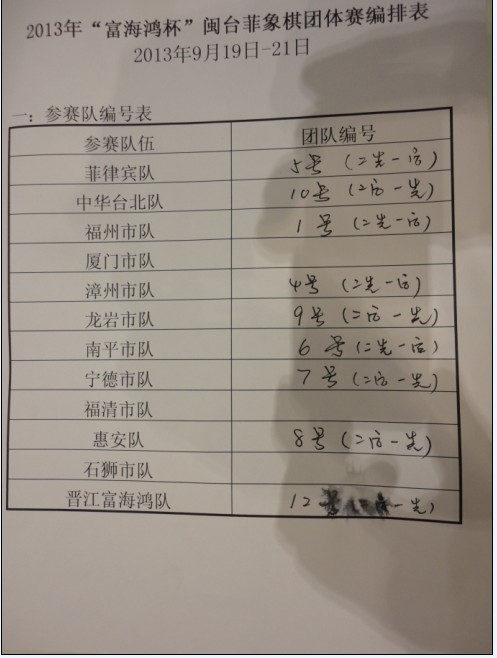 2013年“富海鸿杯”闽台菲象棋团体赛编排表
2013年9月19日-21日
一：参赛队编号表
参赛队伍 团队编号
菲律宾队 5号（二先一后）
中华台北队 10号（二后一先）
福州市队 1号（二先一后）
厦门市队
漳州市队 4号（二先一后）
龙岩市队 9号（二后一先）
南平市队 6号（二先一后）
宁德市队 7号（二后一先）
福清市队
惠安队 8号（二后一先）
石狮市队
晋江富海鸿队 12 一先）